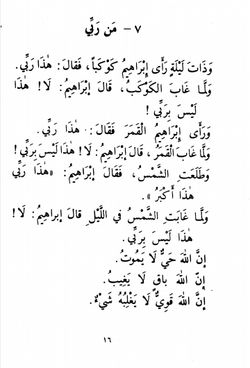 ٧ - مَن رَبِّي
وَذَاتَ لَيْلَةٍ رَأَى إِبْرَاهِيمُ كَوْكَبًا، فَقَالَ: هٰذَا رَبِّي.
وَلَمَّا غَابَ الكَوْكَبُ، قَالَ إِبْرَاهِيمُ: لَا! هٰذَا
لَيْسَ بِرَبِّي!
وَرَأَى إِبْرَاهِيمُ القَمَرَ فَقَالَ: هٰذَا رَبِّي.
وَلَمَّا غَابَ القَمَرُ، قَالَ إِبْرَاهِيمُ: لَا! هٰذَا لَيْسَ بِرَبِّي!
وَطَلَعَتِ الشَّمْسُ، فَقَالَ إِبْرَاهِيمُ: «هٰذَا رَبِّي
هٰذَا أَكْبَرُ».
وَلَمَّا غَابَتِ الشَّمْسُ فِي اللَّيْلِ قَالَ إبراهيمُ: لَا!
هٰذَا لَيْسَ بِرَبِّي.
إِنَّ اللهَ حَيٌّ لَا يَمُوتُ.
إِنَّ اللهَ بَاقٍ لَا يَغِيبُ.
إِنَّ اللهَ قَوِيٌّ لَا يَغْلِبُهُ شَيْءٌ.
١٦